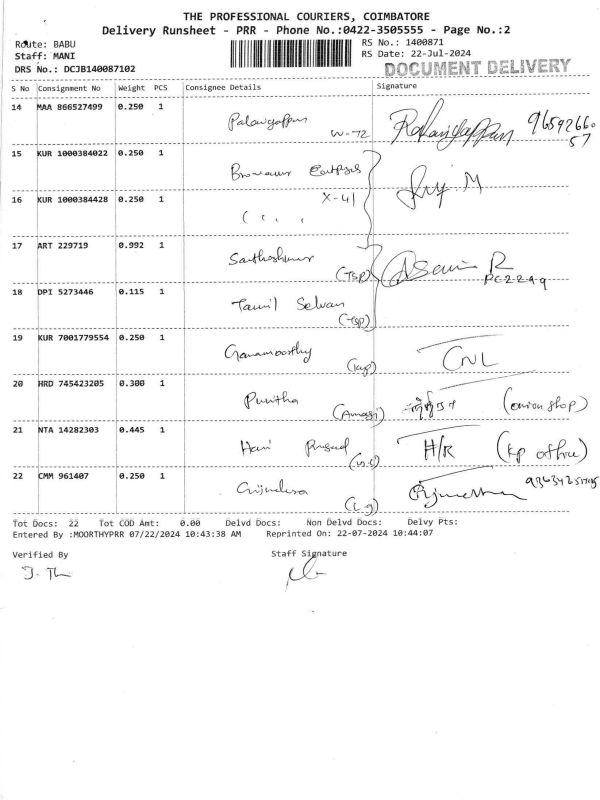 THE PROFESSIONAL COURIERS, COIMBATORE
Delivery Runsheet - PRR - Phone No.:0422-3505555 - Page No.:2
Route: BABU
Staff: MANI
DRS No.: DCJB140087102
RS No.: 1400871
RS Date: 22-Jul-2024
DOCUMENT DELIVERY
S No Consignment No Weight PCS Consignee Details Signature
14 MAA 866527499 0.250 1 Palaniyappan W-72
15 KUR 1000384022 0.250 1
X-41
16 KUR 1000384428 0.250 1
17 ART 229719 0.992 1 (TSP) R
PC2299
18 DPI 5273446 0.115 1 Tamil Selvan (TSP)
19 KUR 7001779554 0.250 1 Ganamoorthy CNL
20 HRD 745423205 0.300 1 Punitha (onion shop)
21 NTA 14282303 0.445 1 Hari Prasad H/R (KP office)
22 CMM 961407 0.250 1
Tot Docs: 22 Tot COD Amt: 0.00 Delvd Docs: Non Delvd Docs: Delvy Pts:
Entered By :MOORTHYPRR 07/22/2024 10:43:38 AM Reprinted On: 22-07-2024 10:44:07
Verified By Staff Signature